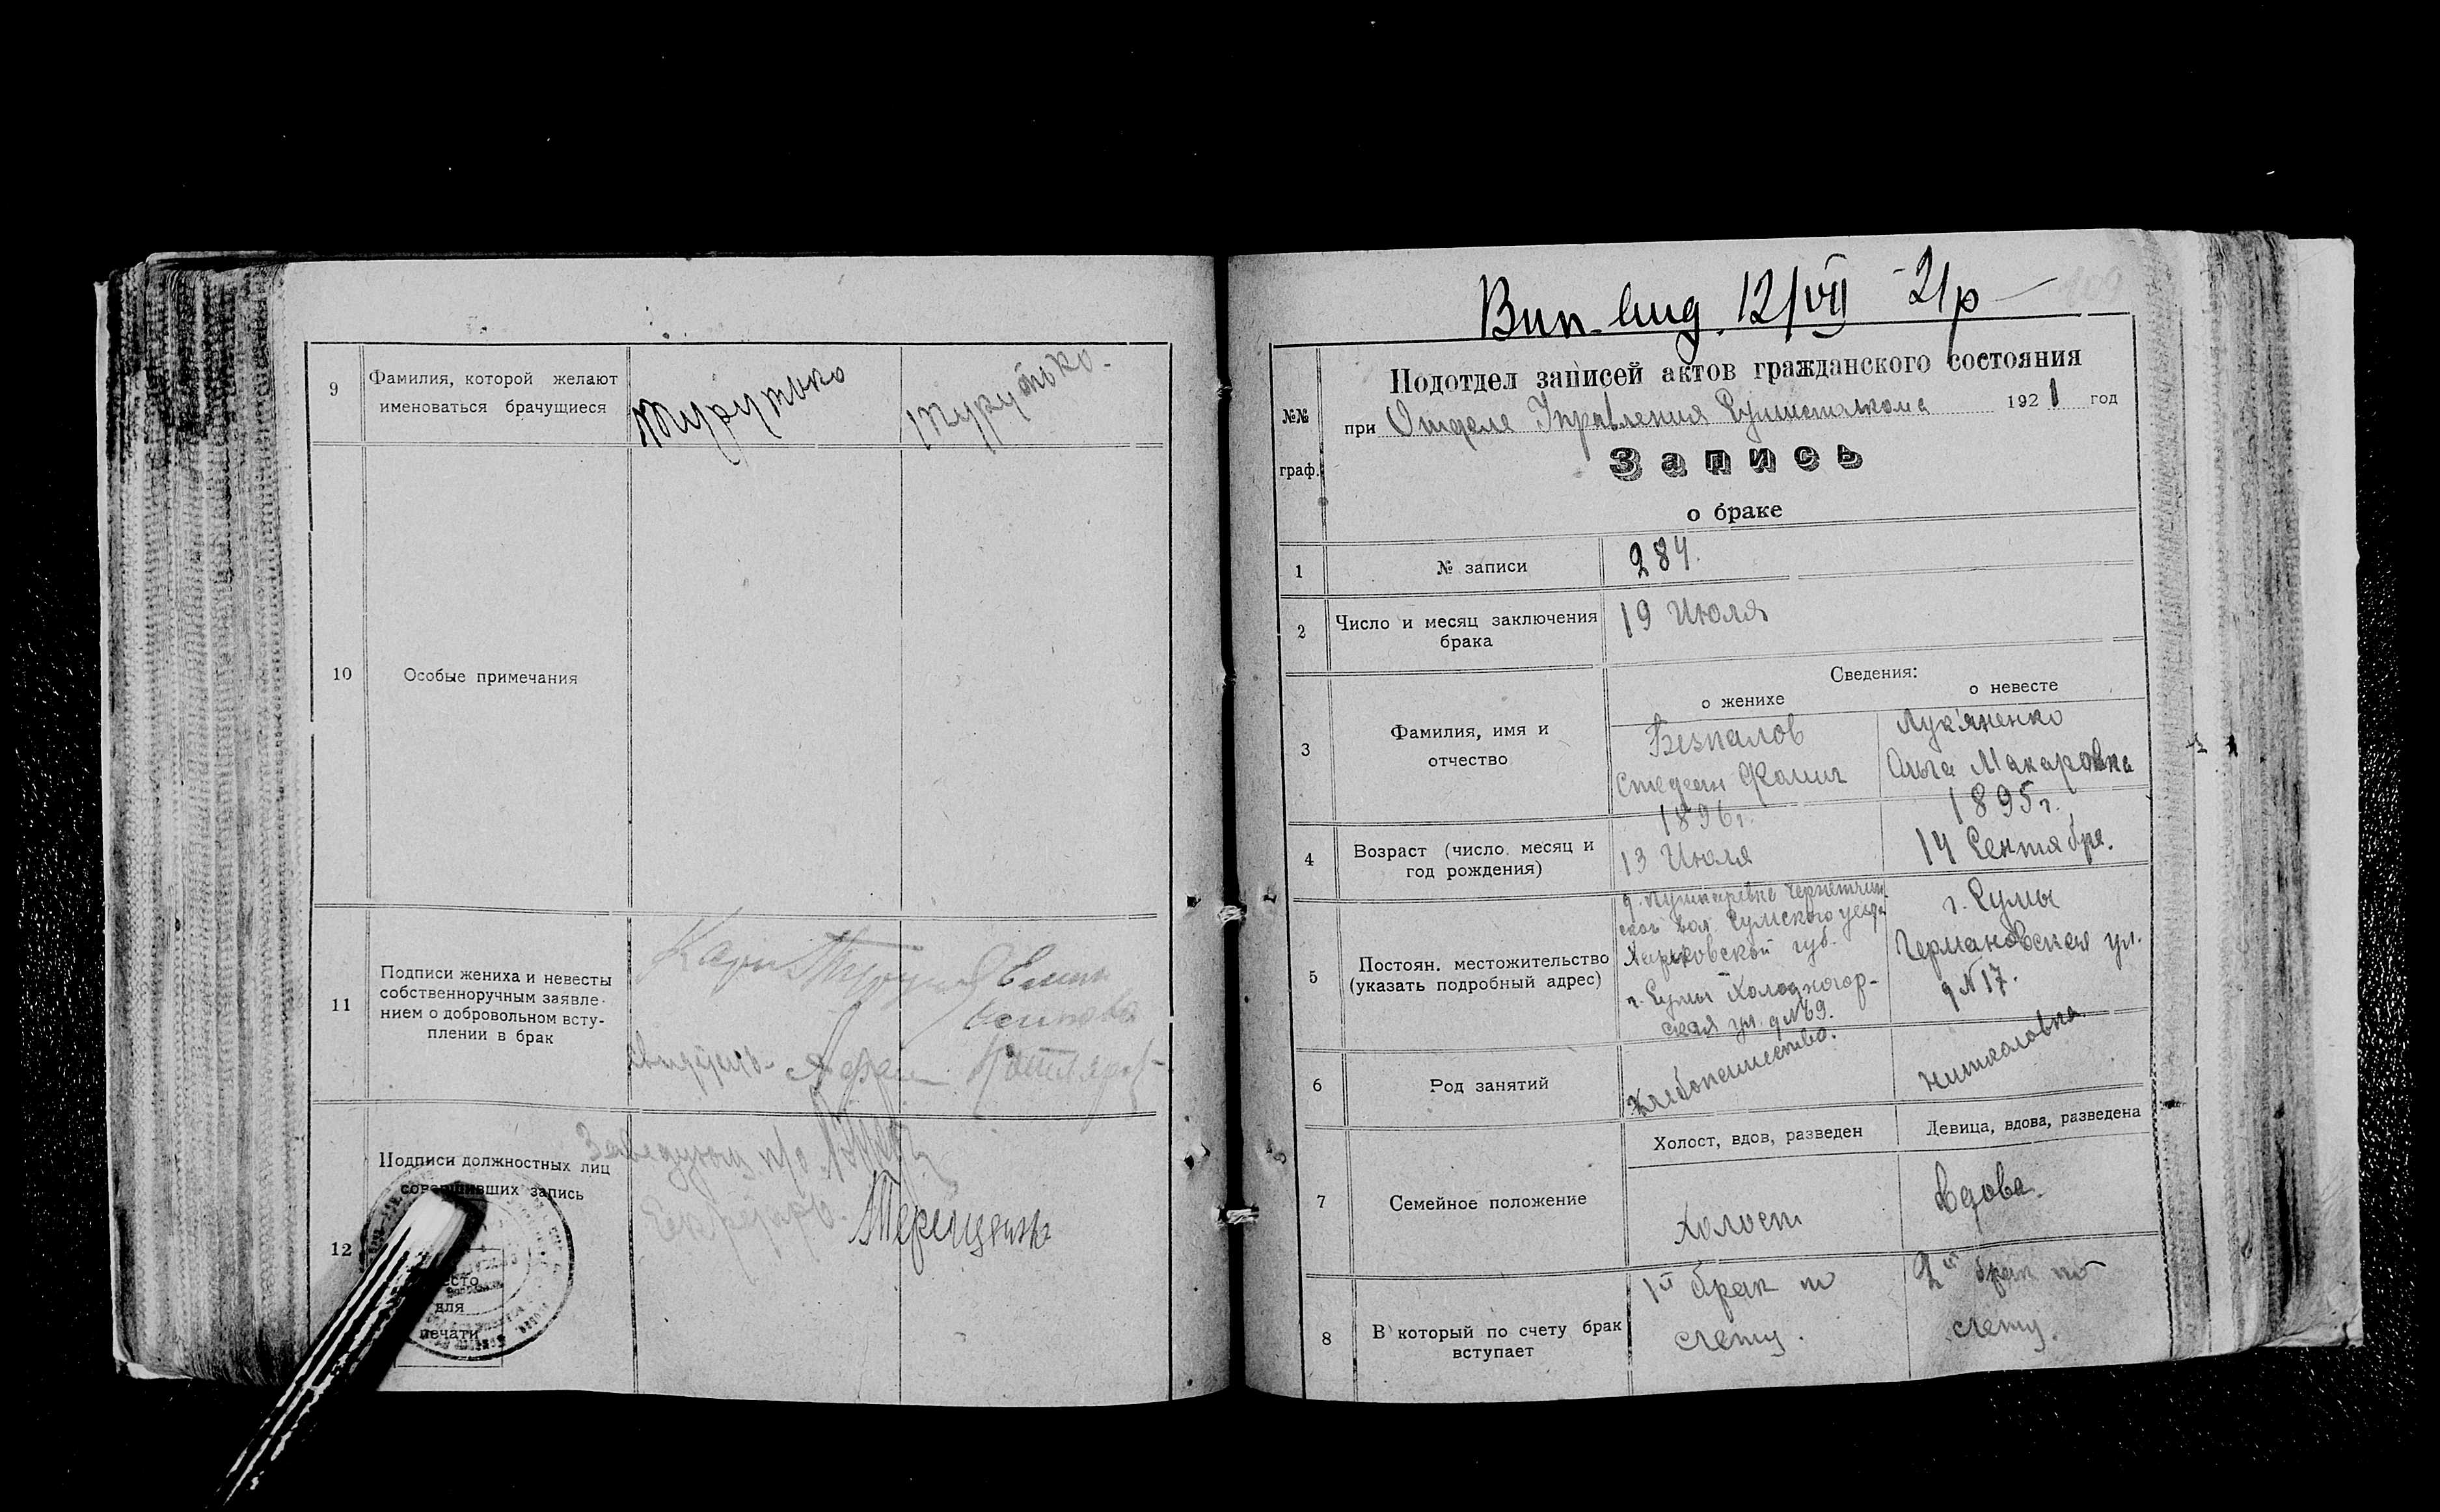 9
Фамилия, которой желают
именоваться брачущиеся
Турутько
Турутько.
10
Особые примечания
11
Подписи жениха и невесты
собственноручным заявле-
нием о добровольном всту-
плении в брак
12
Подписи должностных лиц
совершивших запись
Заведующ п/о
Секретарь.
Терещенко
место
для
печати
Вип. вид. 12/VII -21р
109
Подотдел записей актов гражданского состояния
№№
граф.
при Отделе Управления 1921 год
Запись
о браке
1
№ записи
284.
2
Число и месяц заключения
брака
19 Июля
Сведения:
о женихе
о невесте
3
Фамилия, имя и
отчество
Безпалов
Степан Фомич
Лук'яненко
Ольга Макаровна
4
Возраст (число, месяц и
год рождения)
1896г.
13 Июля
1895г.
14 Сентября.
5
Постоян. местожительство
(указать подробный адрес)
д. Пушкаревка Чернетчин
ской вол Сумского уезда
Харьковской губ.
г. Сумы Холодногор-
ская ул. д №69.
г. Сумы
Германовская ул.
д №17.
6
Род занятий
хлебопашество.
7
Семейное положение
Холост, вдов, разведен
Девица, вдова, разведена
Холост
Вдова.
8
В который по счету брак
вступает
1й брак по
счету.
2й брак по
счету.